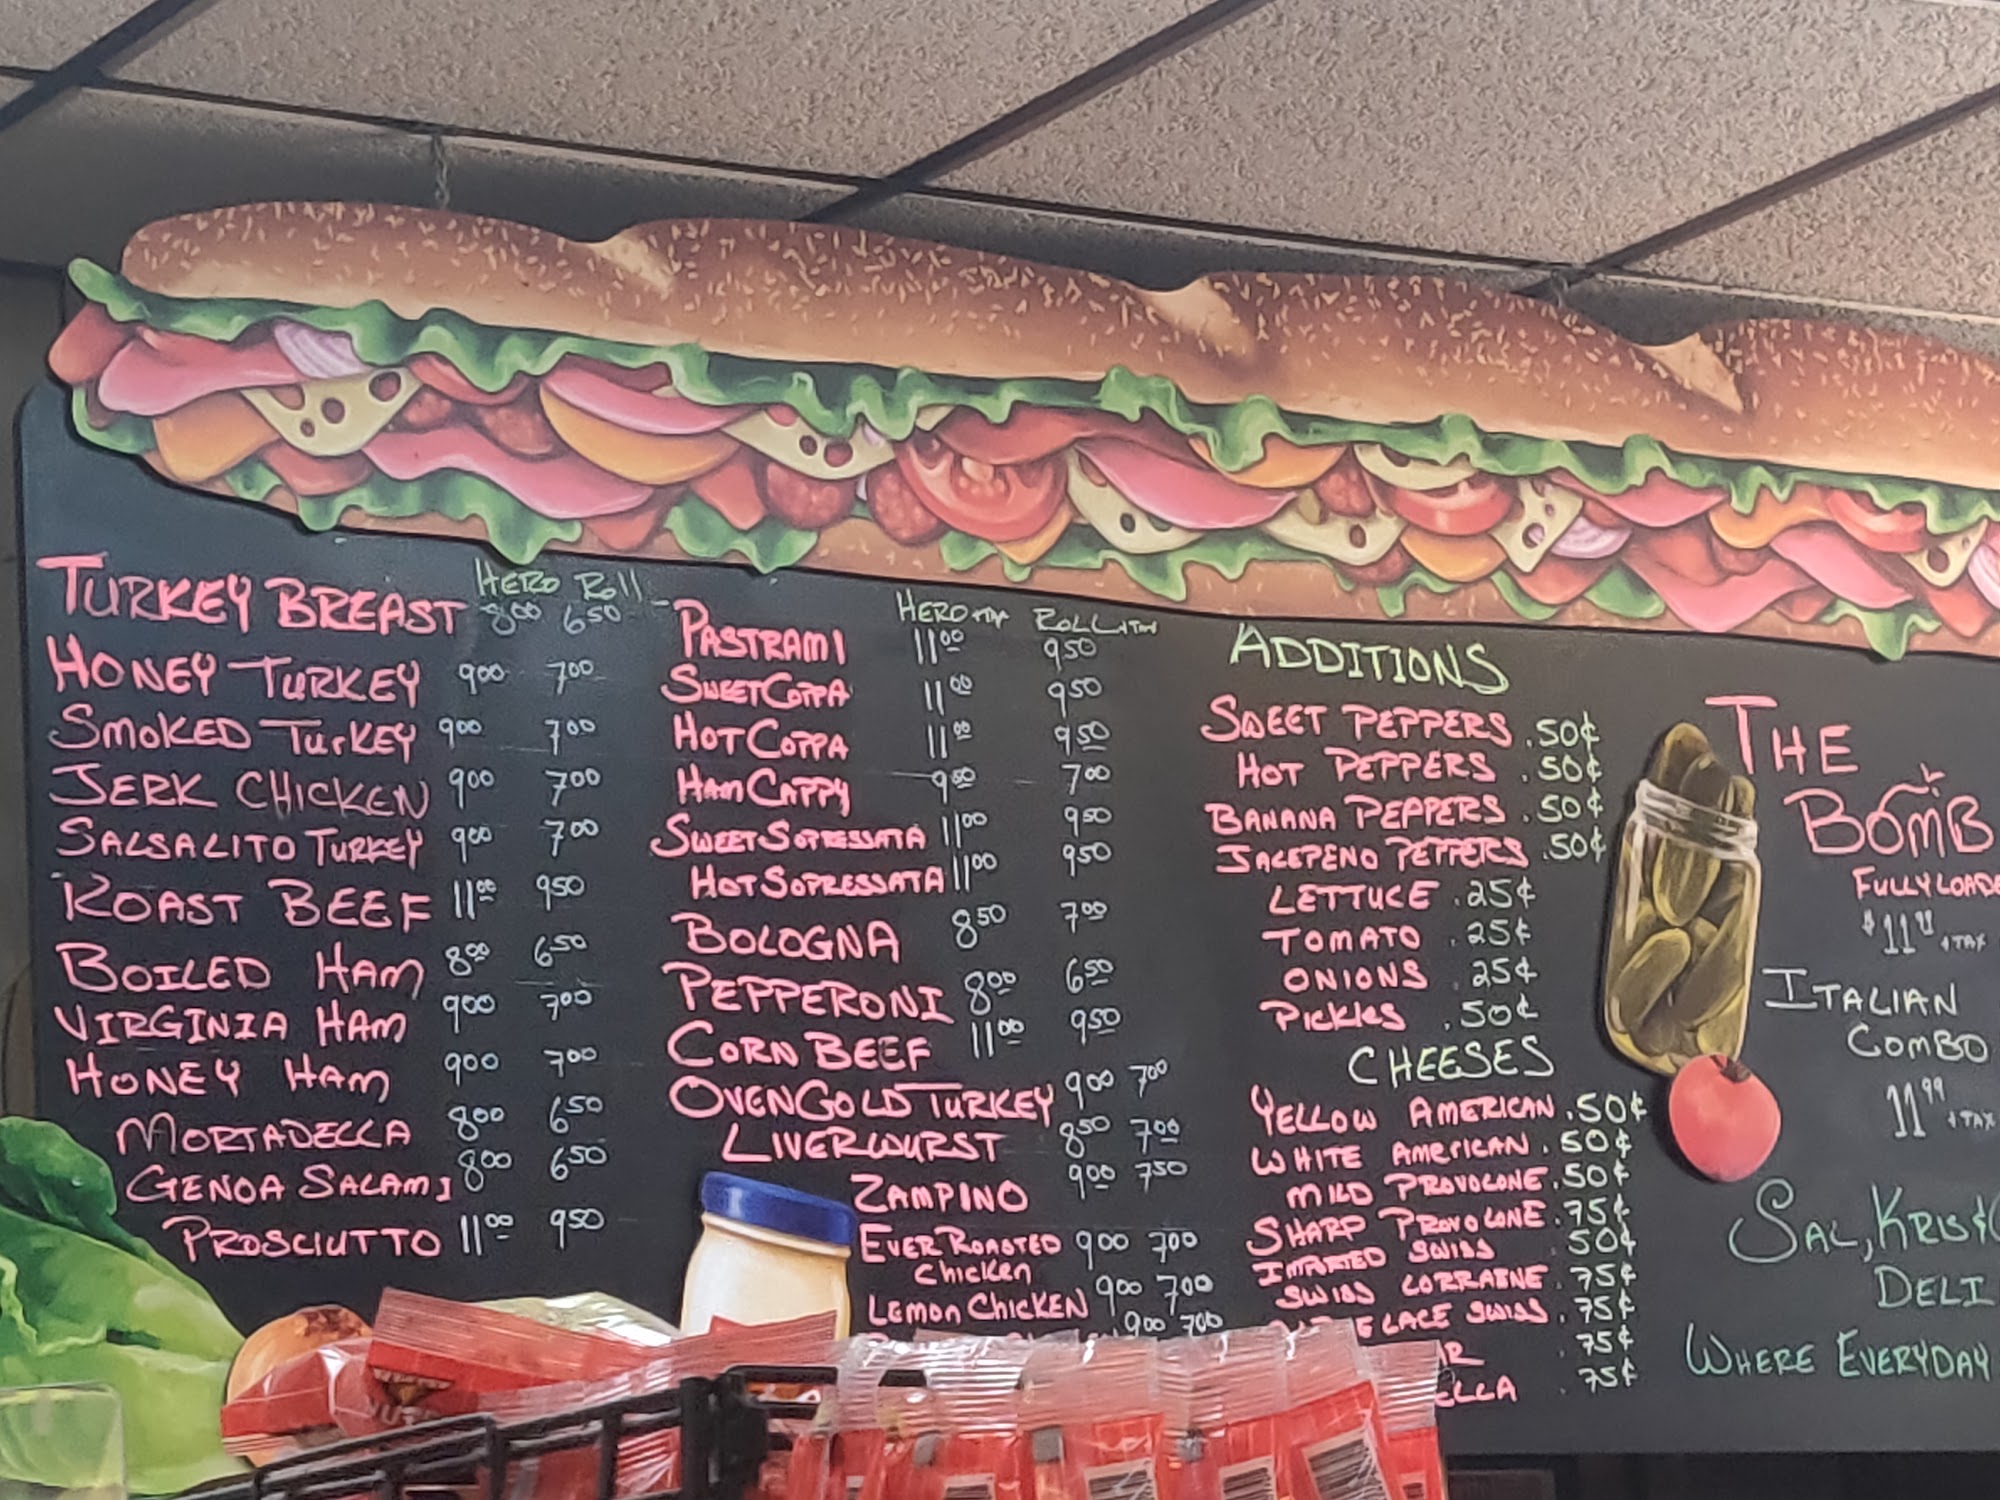 HERO ROLL
TURKEY BREAST 8.00 6.50
HONEY TURKEY 9.00 7.00
SMOKED TURKEY 9.00 7.00
JERK CHICKEN 9.00 7.00
SALSALITO TURKEY 9.00 7.00
ROAST BEEF 11.00 9.50
BOILED HAM 8.00 6.50
VIRGINIA HAM 9.00 7.00
HONEY HAM 9.00 7.00
MORTADELLA 8.00 6.50
GENOA SALAMI 8.00 6.50
PROSCIUTTO 11.00 9.50
HERO +TAX ROLL +TAX
PASTRAMI 11.00 9.50
SWEET COPPA 11.00 9.50
HOT COPPA 11.00 9.50
HAM CAPPY 9.00 7.00
SWEET SOPRESSATA 11.00 9.50
HOT SOPRESSATA 11.00 9.50
BOLOGNA 8.50 7.00
PEPPERONI 8.00 6.50
CORN BEEF 11.00 9.50
OVENGOLD TURKEY 9.00 7.00
LIVERWURST 8.50 7.00
ZAMPINO 9.00 7.50
EVER ROASTED 9.00 7.00
CHICKEN
LEMON CHICKEN 9.00 7.00
9.00 7.00
ADDITIONS
SWEET PEPPERS .50¢
HOT PEPPERS .50¢
BANANA PEPPERS .50¢
JALEPENO PEPPERS .50¢
LETTUCE .25¢
TOMATO .25¢
ONIONS .25¢
PICKLES .50¢
CHEESES
YELLOW AMERICAN .50¢
WHITE AMERICAN .50¢
MILD PROVOLONE .50¢
SHARP PROVOLONE .75¢
IMPORTED SWISS .50¢
SWISS LORRAINE .75¢
LACE SWISS .75¢
.75¢
.75¢
THE
BOMB
FULLY LOADE
$11.99 +TAX
ITALIAN
COMBO
11.99 +TAX
SAL, KRIS &
DELI
WHERE EVERYDAY